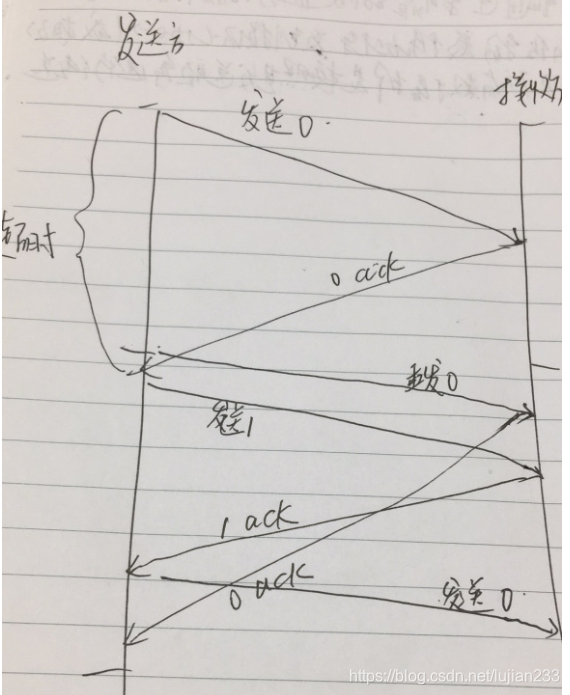 发送方
接收方
发送 0.
超时
0 ack
重发 0
发送 1
1 ack
0 ack
发送 0.
https://blog.csdn.net/lujian233